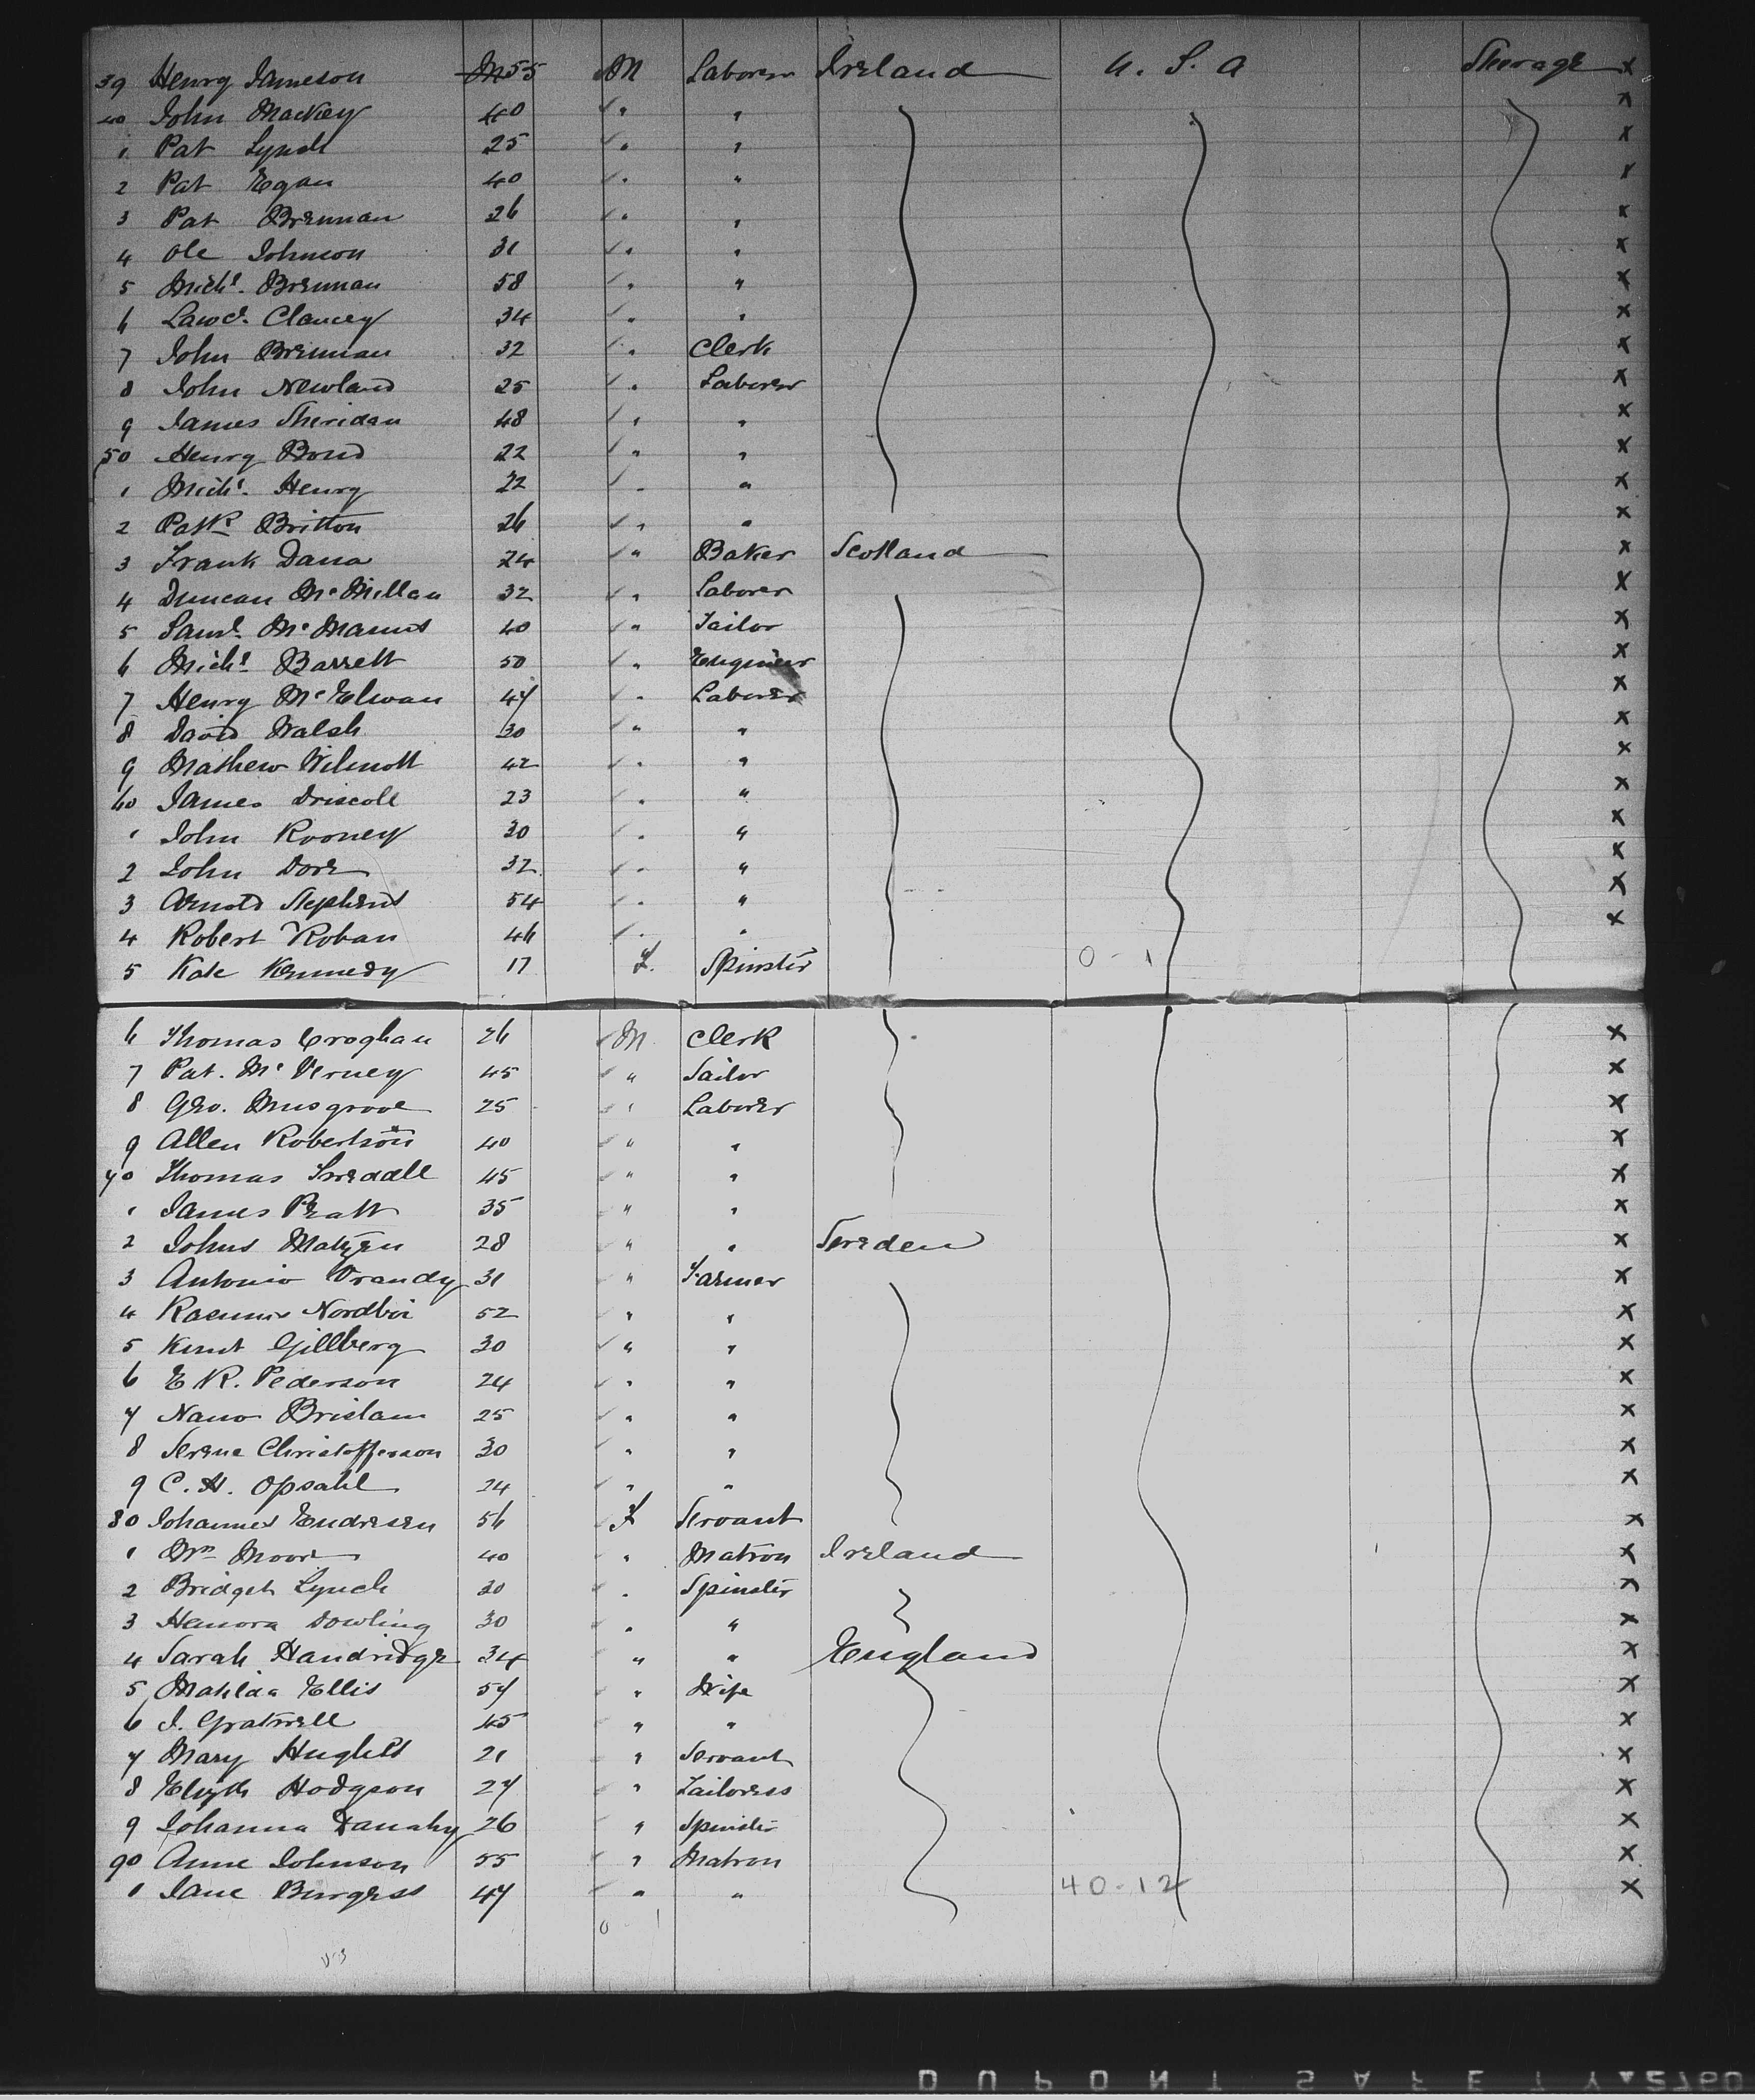 39 Henry Jameson 55 M Laborer Ireland U. S. A Steerage x
40 John Mackey 40 " " x
1 Pat Lynch 25 " " x
2 Pat Egan 40 " " x
3 Pat Brennan 26 " " x
4 Ole Johnson 31 " " x
5 Michl. Brennan 58 " " x
6 Lawce. Clancey 34 " " x
7 John Brennan 32 " Clerk x
8 John Newland 25 " Laborer x
9 James Sheridan 48 " " x
50 Henry Bond 22 " " x
1 Michl. Henry 22 " " x
2 Patk Britton 26 " " x
3 Frank Dana 24 " Baker Scotland x
4 Duncan McMillan 32 " Laborer x
5 Saml. McManus 40 " Tailor x
6 Michl. Barrett 50 " Engineer x
7 Henry McElwan 47 " Laborer x
8 David Walsh 30 " " x
9 Mathew Wilmott 42 " " x
60 James Driscoll 23 " " x
1 John Rooney 30 " " x
2 John Dore 32 " " x
3 Arnold Stephens 54 " " x
4 Robert Roban 46 " " x
5 Kate Kennedy 17 F. Spinster 0 - 1
6 Thomas Croghan 26 M Clerk x
7 Pat. McVerney 45 " Sailor x
8 Geo. Musgrove 25 " Laborer x
9 Allen Robertson 40 " " x
70 Thomas 45 " " x
1 James Pratt 35 " " x
2 Johns Matzen 28 " " Sweden x
3 Antonio 31 " Farmer x
4 Rasmus Nordboi 52 " " x
5 Knut Gillberg 30 " " x
6 E R. Pederson 24 " " x
7 Brislam 25 " " x
8 Serene Christofferson 30 " " x
9 C. H. Opsahl 24 " " x
80 Johannes Endresen 56 F Servant x
1 Mrs Moore 40 " Matron Ireland x
2 Bridget Lynch 20 " Spinster x
3 Henora Dowling 30 " " x
4 Sarah Handridge 34 " " England x
5 Matilda Ellis 57 " Wife x
6 J. Gratwell 45 " " x
7 Mary Hughes 21 " Servant x
8 Elizth Hodgson 27 " Tailoress x
9 Johanna Danahy 26 " Spinster x
90 Anne Johnson 55 " Matron x
1 Jane Burgess 47 " " 40-12 x
0 - 1
DUPONT SAFETY